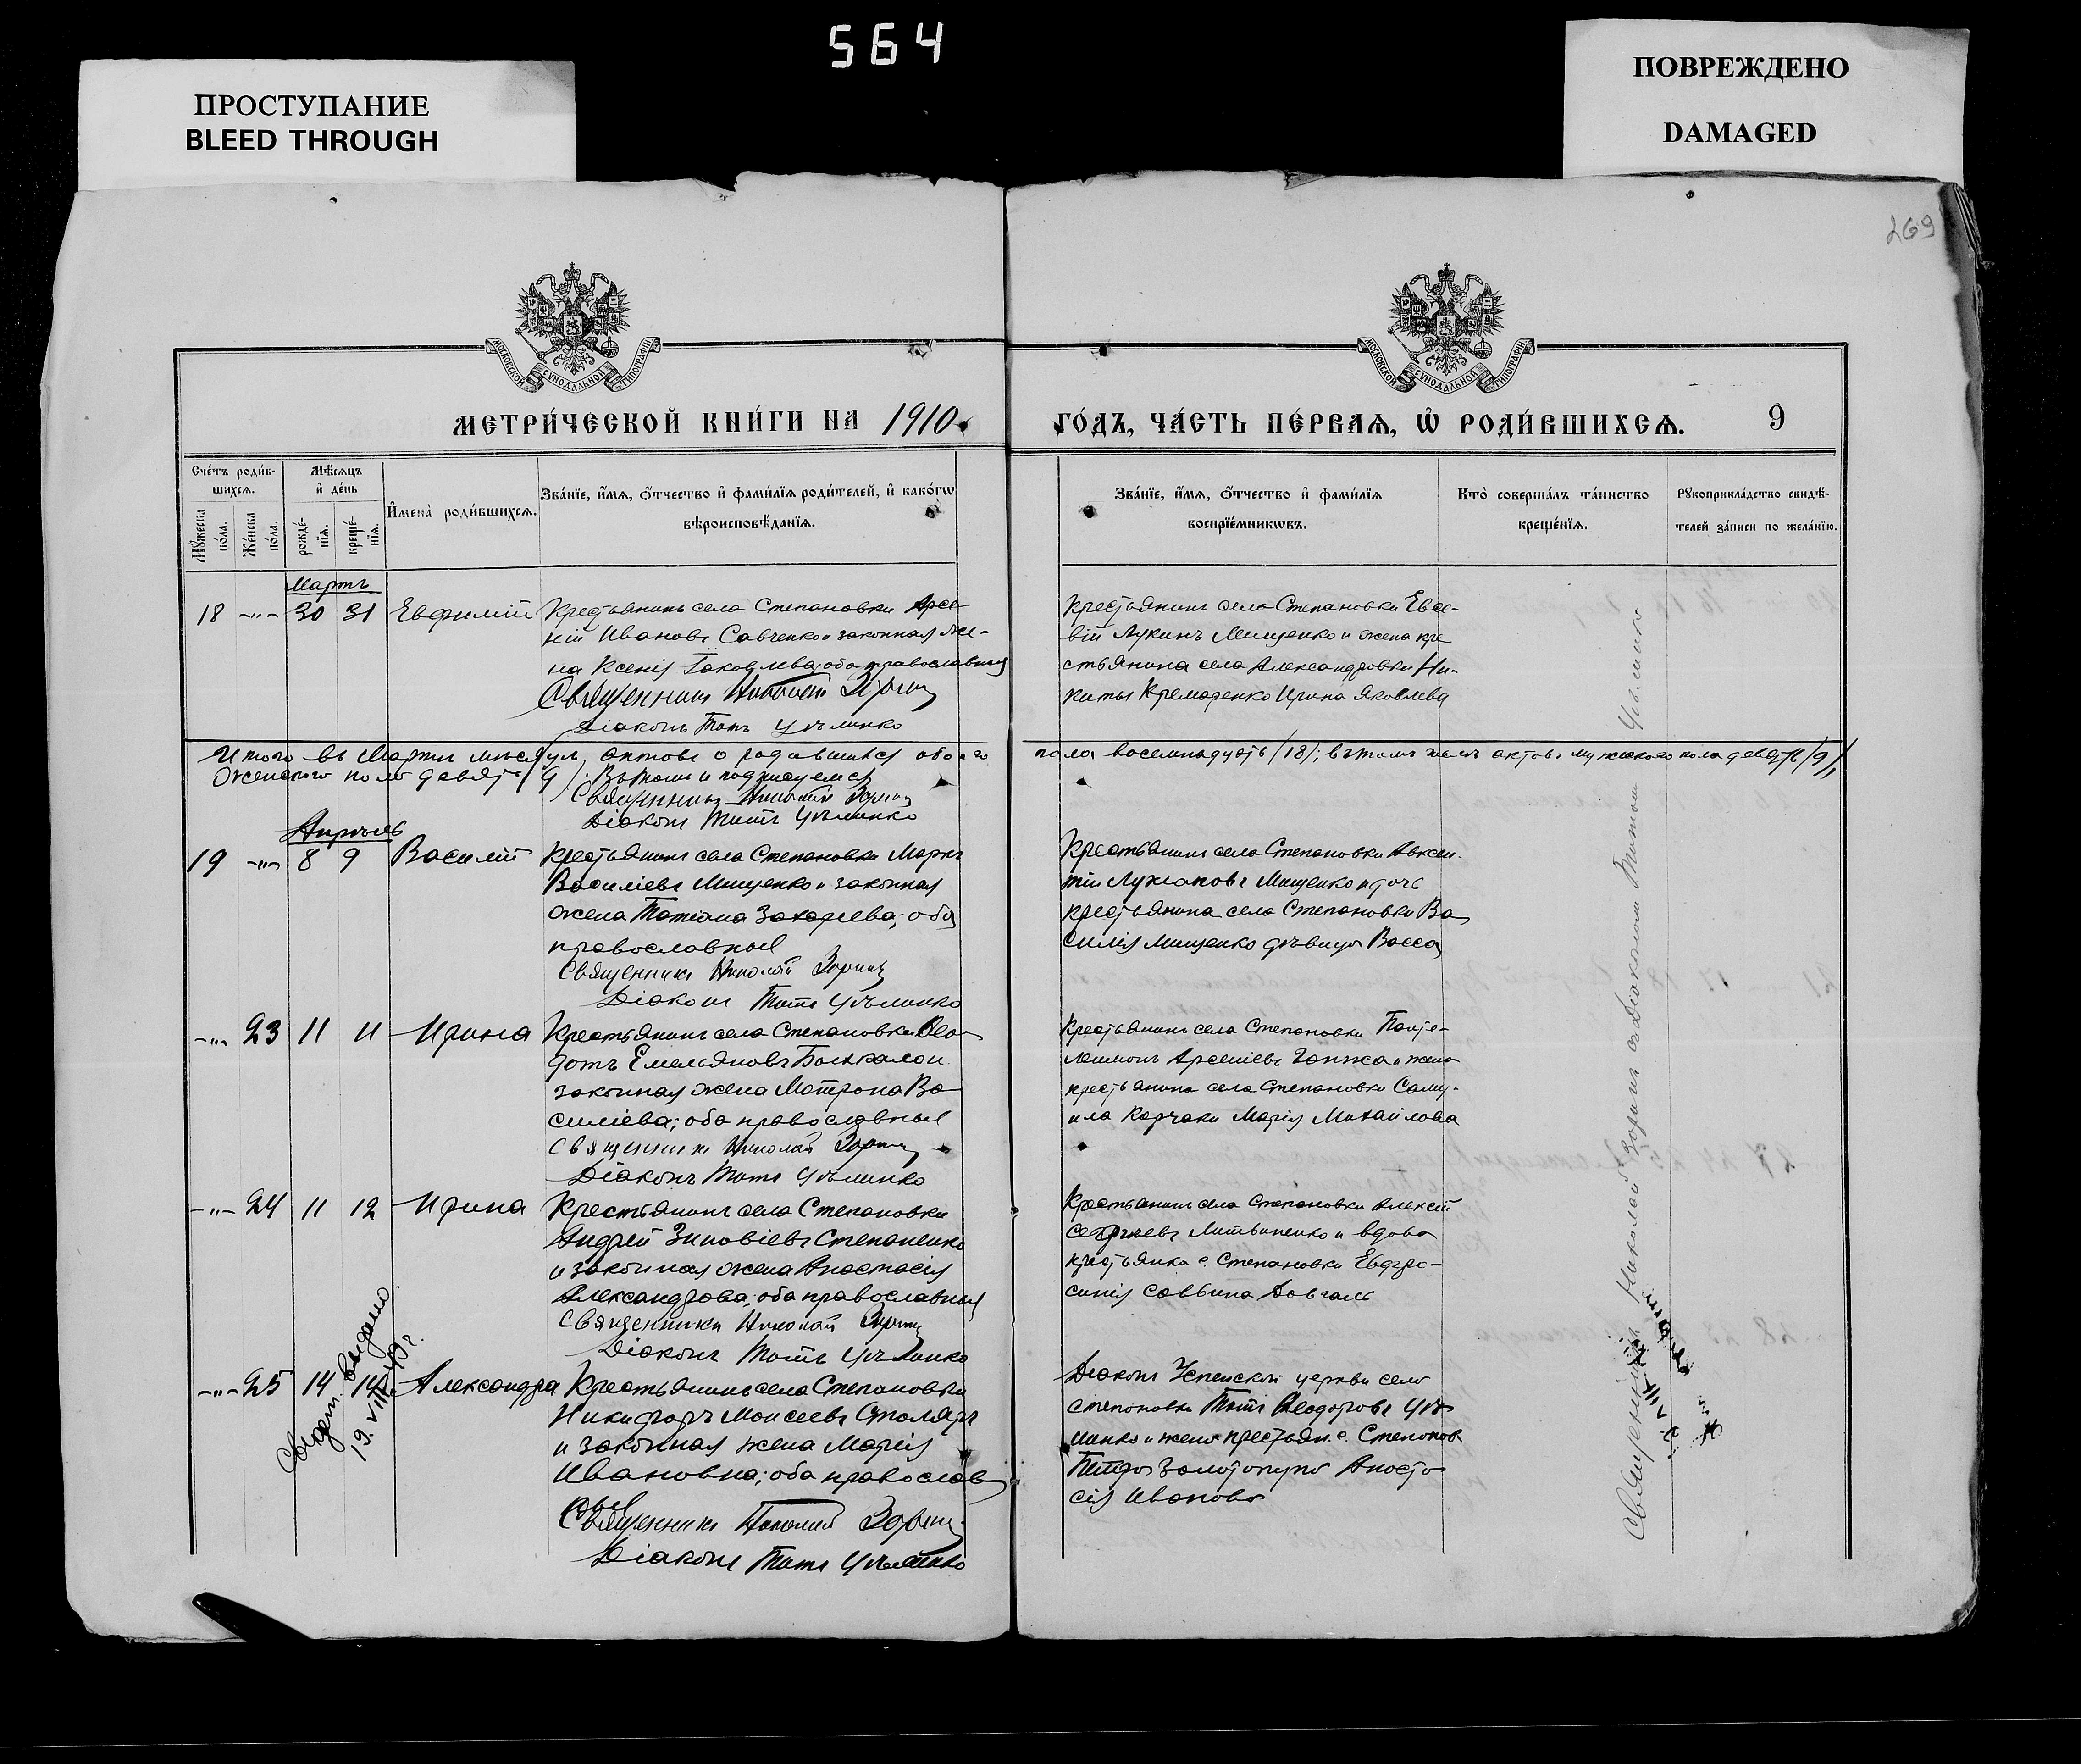 564
ПРОСТУПАНИЕ
BLEED THROUGH
ПОВРЕЖДЕНО
DAMAGED
269
МОСКОВСКОЙ СУНОДАЛЬНОЙ ТИПОГРАФІИ
МОСКОВСКОЙ СУНОДАЛЬНОЙ ТИПОГРАФІИ
МЕТРИ́ЧЕСКОЙ КНИ́ГИ НА 1910
ГО́ДЪ, ЧА́СТЬ ПЕ́РВАѦ, Ѽ РОДИ́ВШИХСѦ. 9
Сче́тъ роди́в-
шихсѧ.
Мꙋ́жеска по́ла.
Же́нска по́ла.
Мѣ́сѧцъ
и҆ де́нь
рожде́-
нїѧ.
креще́-
нїѧ.
И҆мена̀ роди́вшихсѧ.
Зва́нїе, и҆́мѧ, ѻ҆́тчество и҆ фами́лїѧ роди́телей, и҆ како́гѡ
вѣроисповѣ́данїѧ.
Зва́нїе, и҆́мѧ, ѻ҆́тчество и҆ фами́лїѧ
воспрїе́мникѡвъ.
Кто̀ соверша́лъ та́инство
креще́нїѧ.
Рꙋкоприкла́дство свидѣ́-
телей за́писи по жела́нїю.
Мартъ
18 -"- 30 31 Евфимій Крестьянинъ села Степановки Арсе-
ній Ивановъ Савченко и законная же-
на Ксенія Іаковлева; оба православные
Священникъ Николай Зоринъ
Діаконъ Титъ Цѣлинко
Крестьянинъ села Степановки Евсе-
вій Лукинъ Мищенко и жена кре
стьянина села Александровки Ни-
киты Кремаренко Ирина Яковлева
Итого въ Мартѣ мѣсяцѣ актовъ о родившихся обоего
пола восемнадцать /18/; въ томъ числѣ актовъ мужского пола девять /9/,
женского пола девять /9/. Въ томъ и подписуемся
Священникъ Николай Зоринъ
Діаконъ Титъ Цѣлинко
Апрѣль
19 -"- 8 9 Василій Крестьянинъ села Степановки Маркъ
Василіевъ Мищенко и законная
жена Татіана Захаріева; оба
православные
Священникъ Николай Зоринъ
Діаконъ Титъ Цѣлинко
Крестьянинъ села Степановки Авксен-
тій Мищенко и дочь
крестьянина села Степановки Ва
силія Мищенко дѣвица Васса
-"- 23 11 11 Ирина Крестьянинъ села Степановки Ѳео-
дотъ Емельяновъ и
законная жена Матрона Ва
силіева; оба православные
Священникъ Николай Зоринъ
Діаконъ Титъ Цѣлинко
Крестьянинъ села Степановки Панте-
леимонъ Арсеніевъ Ганжа и жена
крестьянина села Степановки Саму-
ила Карчаки Марія Михайлова
-"- 24 11 12 Ирина Крестьянинъ села Степановки
Андрей Зиновіевъ Степаненко
и законная жена Анастасія
Александрова; оба православные
Священникъ Николай Зоринъ
Діаконъ Титъ Цѣлинко
Крестьянинъ села Степановки Алексій
Сергіевъ Литвиненко и вдова
крестьянка с. Степановки Евфро-
синія Саввина Довгаль
-"- 25 14 14 Александра Крестьянинъ села Степановки
Никифоръ Моисеевъ Столяръ
и законная жена Марія
Ивановна; оба православ
ные
Священникъ Николай Зоринъ
Діаконъ Титъ Цѣлинко
Діаконъ Успенской церкви села
Степановки Титъ Ѳеодоровъ Цѣ
линко и жена крестьян. с. Степановк
Петра Золотопупа Анаста
сія Иванова
Свидет. выдано
19. VIII
Священникъ Николай Зоринъ съ Діакономъ Титомъ Цѣлинко